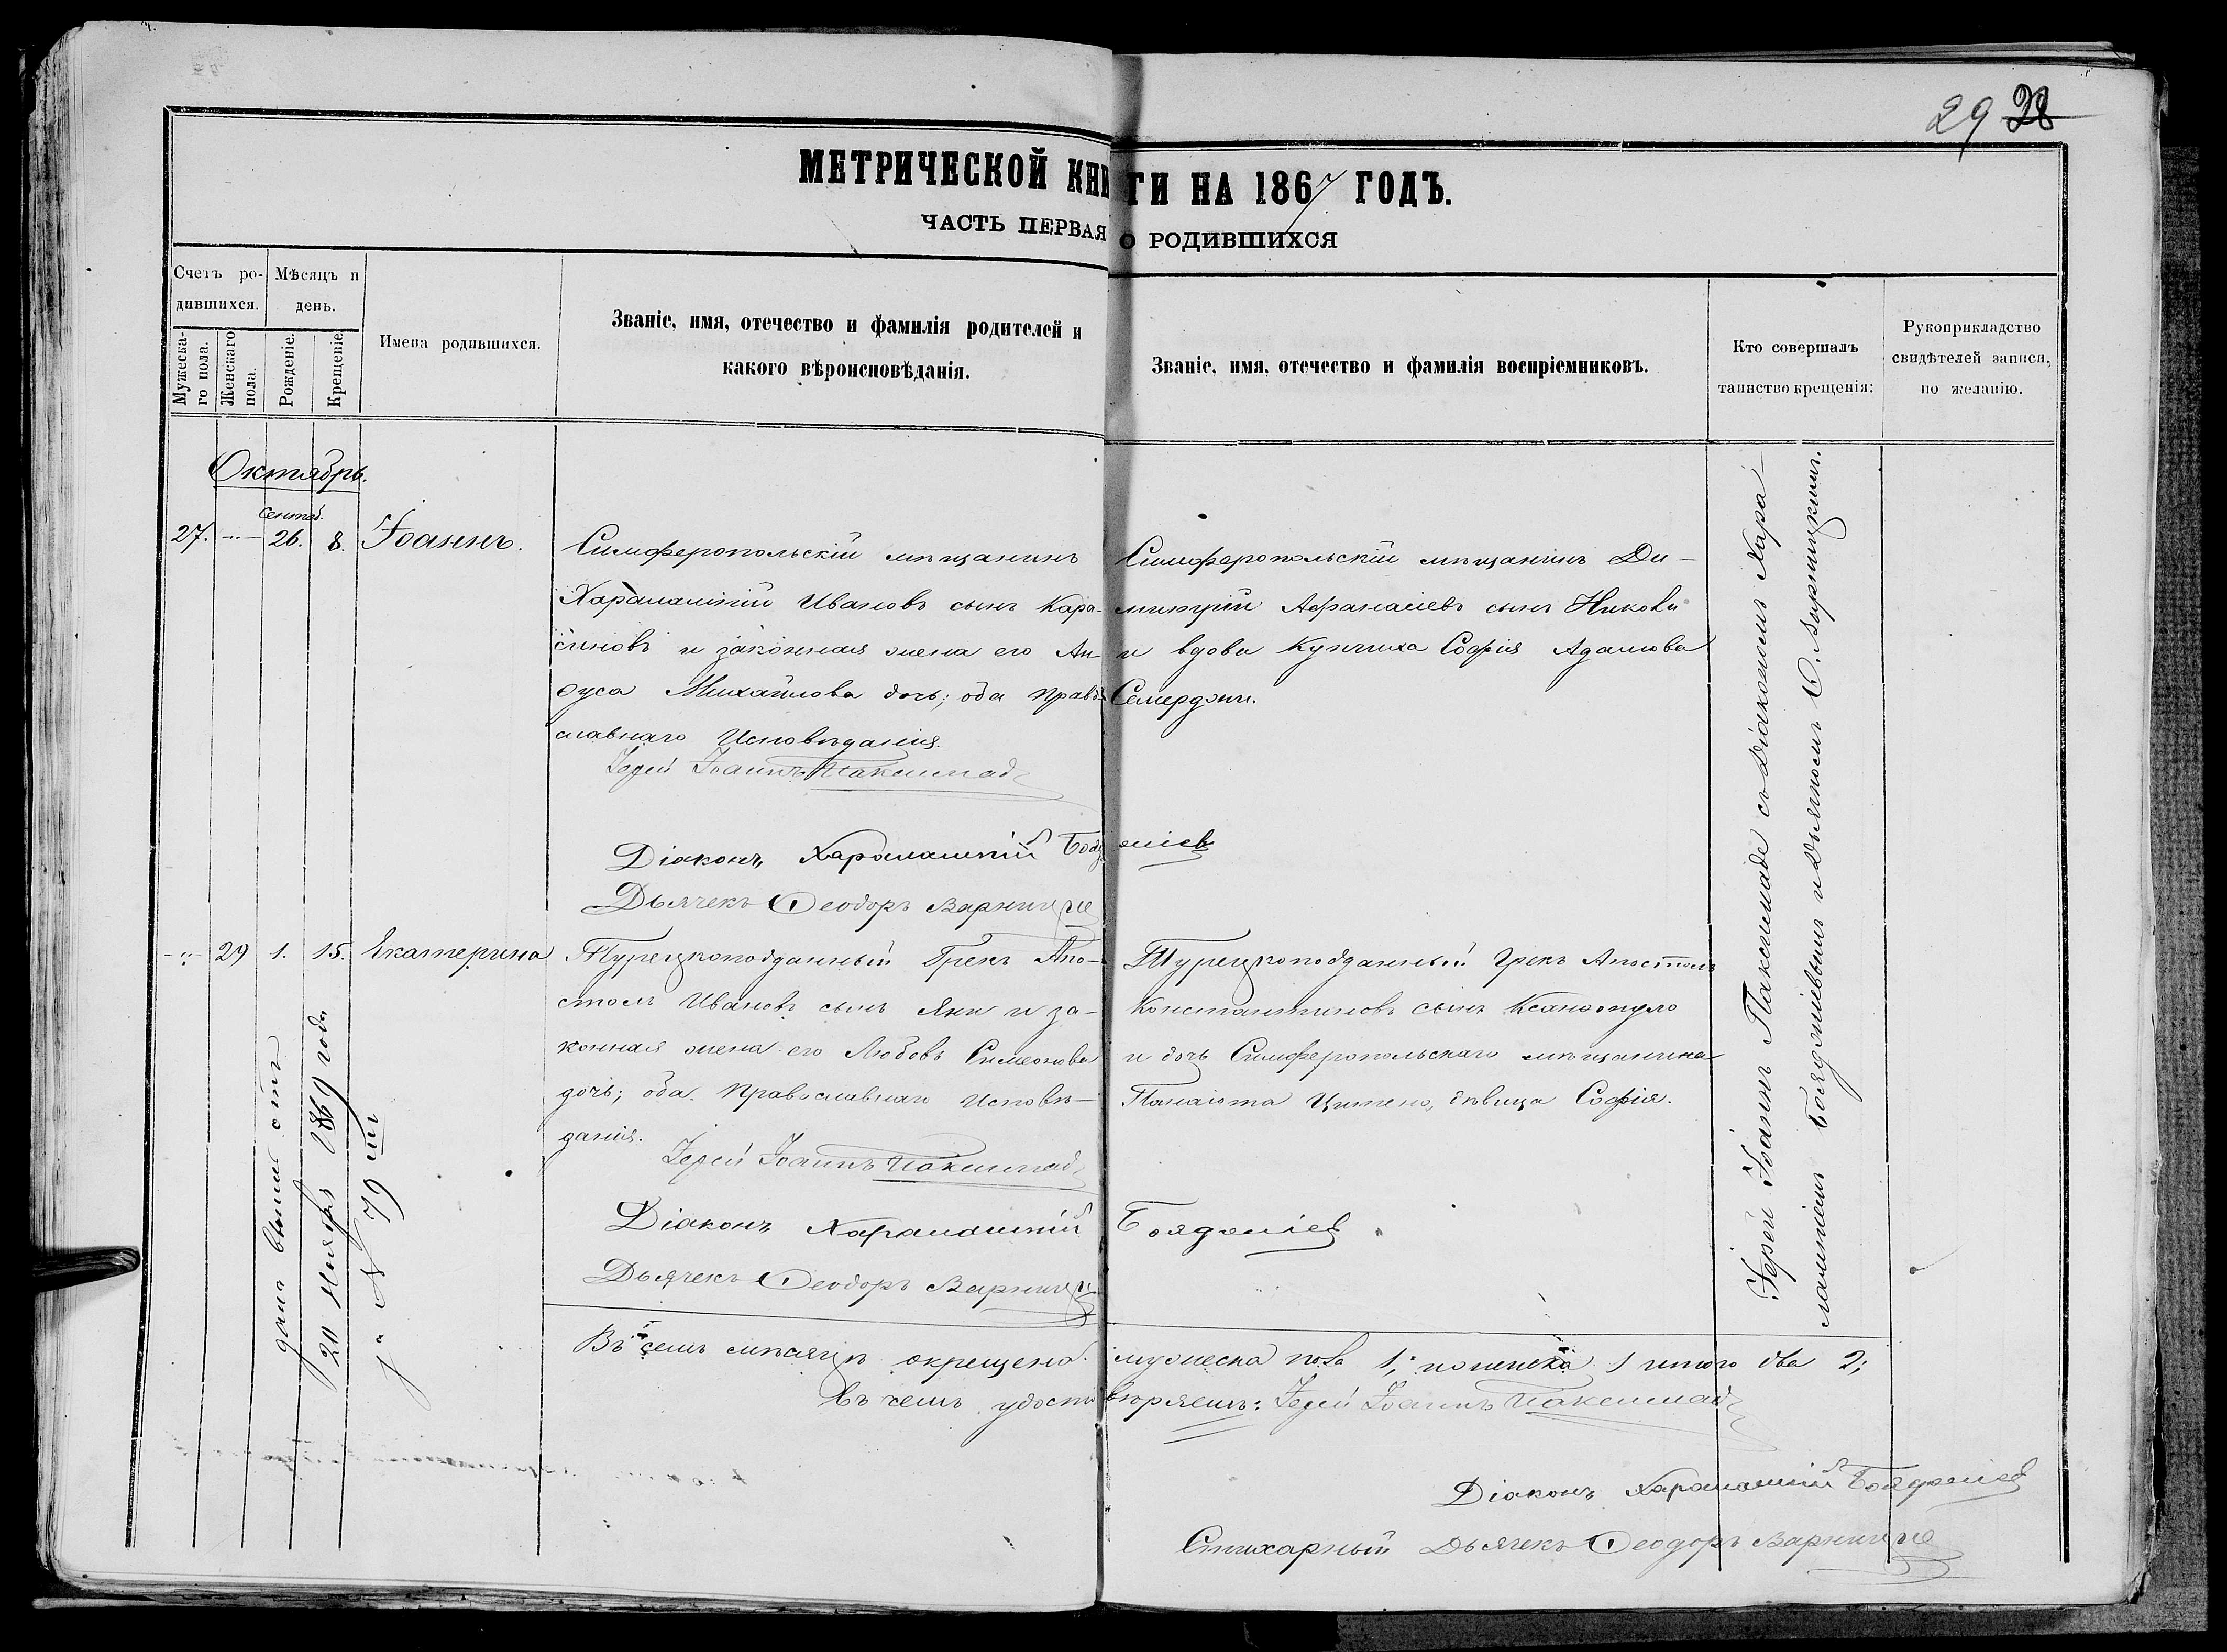 29 28
МЕТРИЧЕСКОЙ КНИГИ НА 1867 ГОДЪ.
ЧАСТЬ ПЕРВАЯ О РОДИВШИХСЯ
Счетъ ро-
дившихся.
Мѣсяцъ и
день.
Мужеска-
го пола.
Женскаго
пола.
Рожденіе.
Крещеніе.
Имена родившихся.
Званіе, имя, отечество и фамилія родителей и
какого вѣроисповѣданія.
Званіе, имя, отечество и фамилія воспріемниковъ.
Кто совершалъ
таинство крещенія:
Рукоприкладство
свидѣтелей записи,
по желанію.
Октябрь.
Сентяб.
27. 26. 8. Іоаннъ.
Симферопольскій мѣщанинъ
Харалампій Ивановъ сынъ Кара-
синовъ и законная жена его Ан-
фуса Михайлова дочь; оба Право-
славнаго Исповѣданія.
Іерей Іоаннъ Паксимад
Діаконъ Харалампій Бояджіев
Дьячекъ Ѳеодоръ Варницкіе
Симферопольскій мѣщанинъ Ди-
митрій Аѳанасіевъ сынъ Никова
и вдова Купчиха Софія Адамова
Семерджи.
29 1. 15. Екатерина
Турецкоподданный Грекъ Апо-
столъ Ивановъ сынъ Яни и за-
конная жена его Любовь Симеонова
дочь; оба Православнаго Исповѣ-
данія.
Іерей Іоаннъ Паксимад
Діаконъ Харалампій Бояджіев
Дьячекъ Ѳеодоръ Варниц
Турецкоподданный Грекъ Апостолъ
Константиновъ сынъ Ксанопуло
и дочь Симферопольскаго мѣщанина
Панаіота дѣвица Софія.
Іерей Іоаннъ Паксимаде съ Діакономъ Хара-
лампіемъ Бояджіевымъ и Дьячкомъ Ѳ. Варницкимъ.
дана выпись отъ
20 Ноября 1869 года
за N 79 ш
Въ семъ мѣсяцѣ окрещено мужеска пола 1; и женска 1 итого два 2;
въ чемъ удостовѣряемъ: Іерей Іоаннъ Паксимад
Діаконъ Харалампій Бояджіев
Стихарный Дьячекъ Ѳеодоръ Варницкіе